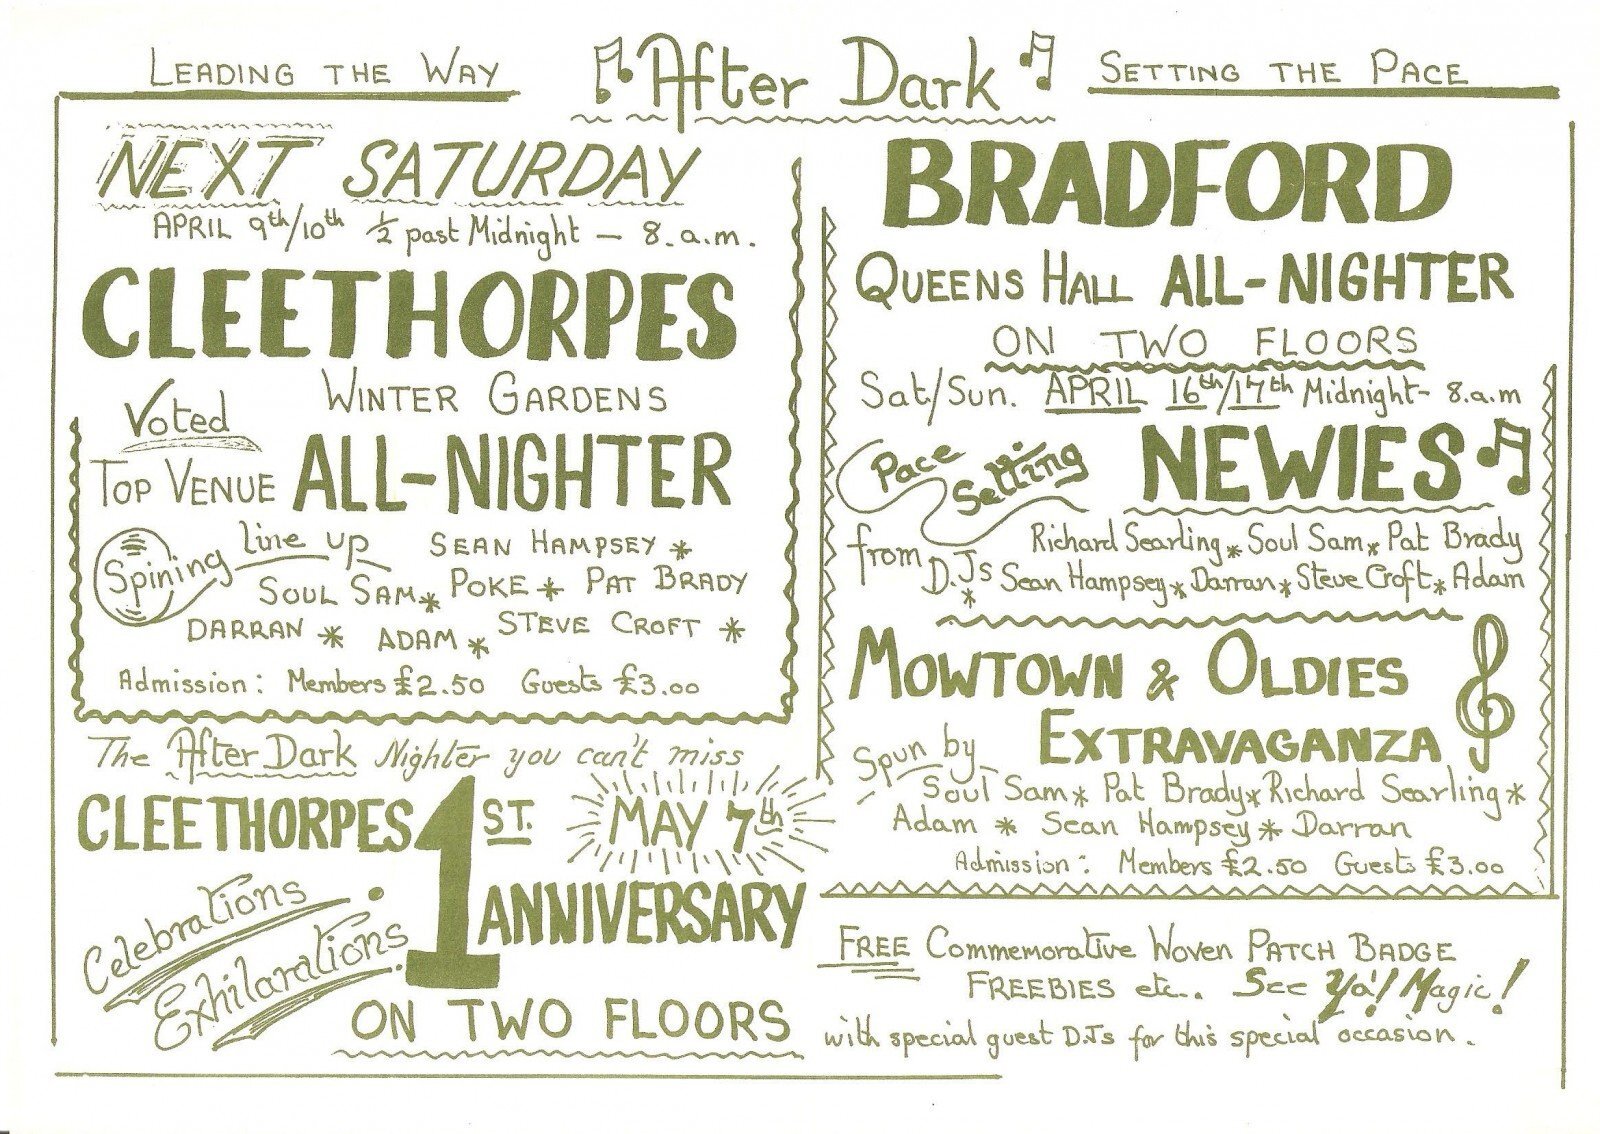 LEADING THE WAY
After Dark
SETTING THE PACE
NEXT SATURDAY
APRIL 9th/10th ½ past Midnight — 8.a.m.
CLEETHORPES
WINTER GARDENS
Voted
TOP VENUE ALL-NIGHTER
Spining line up SEAN HAMPSEY *
SOUL SAM * POKE * PAT BRADY
DARRAN * ADAM * STEVE CROFT *
Admission: Members £2.50 Guests £3.00
The After Dark Nighter you can't miss
CLEETHORPES 1ST. MAY 7th
ANNIVERSARY
Celebrations
Exhilarations
ON TWO FLOORS
BRADFORD
QUEENS HALL ALL-NIGHTER
ON TWO FLOORS
Sat/Sun. APRIL 16th/17th Midnight - 8.a.m
Pace Setting NEWIES
from D.Js Richard Searling * Soul Sam * Pat Brady
* Sean Hampsey * Darran * Steve Croft * Adam
MOWTOWN & OLDIES
EXTRAVAGANZA
Spun by
Soul Sam * Pat Brady * Richard Searling *
Adam * Sean Hampsey * Darran
Admission: Members £2.50 Guests £3.00
FREE Commemorative WOVEN PATCH BADGE
FREEBIES etc.. See Ya! Magic!
with special guest D.Js for this special occasion.